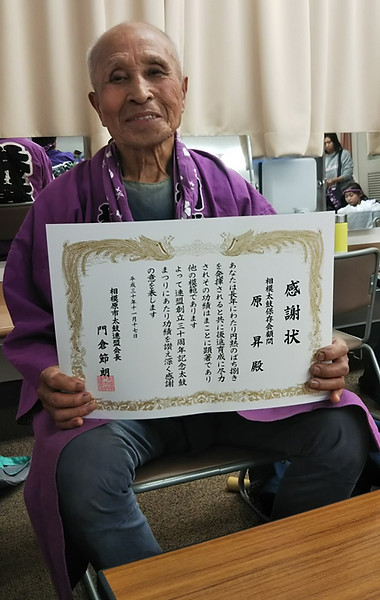 感謝状
相模太鼓保存会顧問
原 昇 殿
あなたは長年にわたり円熟のばち捌き
を発揮されると共に後進育成に尽力
されその功績はまことに顕著であり
他の模範であります
よって連盟創立三十周年記念太鼓
まつりにあたり功績を讃え深く感謝
の意を表します
平成三十年十一月十七日
相模原市太鼓連盟会長
門倉節朗